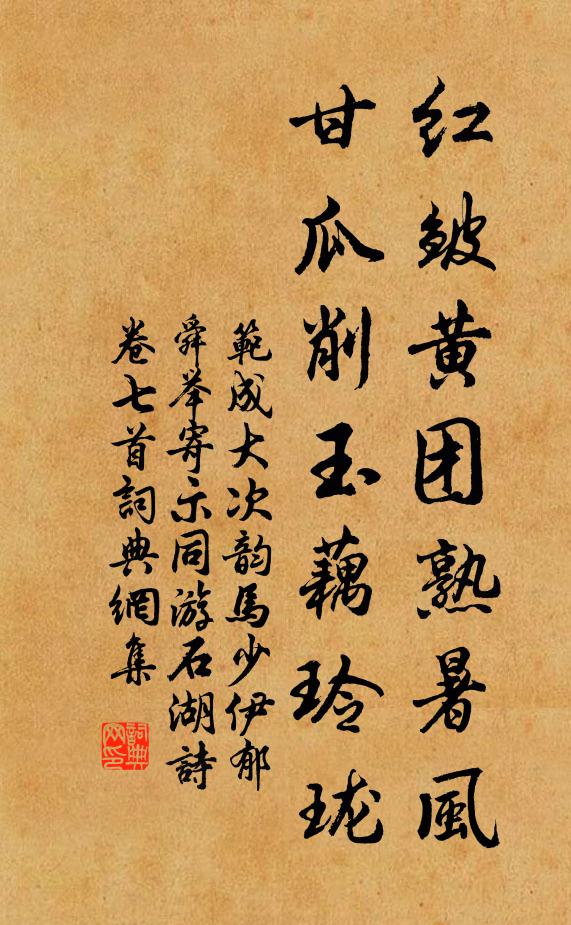 红皴黄团熟暑風
甘瓜削玉藕玲珑
範成大次韵馬少伊郁
舜举寄示同游石湖詩
卷七首詞典網集
詞典網印